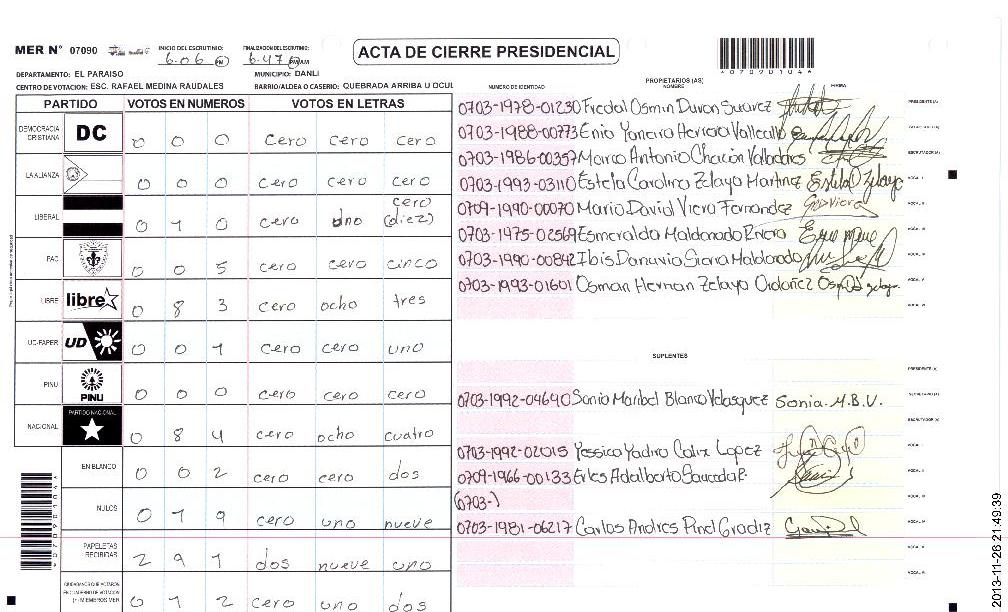 MER N° 07090
INICIO DEL ESCRUTINIO: 6:06 PM
FINALIZACION DEL ESCRUTINIO: 6:47 PM AM
ACTA DE CIERRE PRESIDENCIAL
4070901046
DEPARTAMENTO: EL PARAISO
MUNICIPIO: DANLI
CENTRO DE VOTACION: ESC. RAFAEL MEDINA RAUDALES
BARRIO/ALDEA O CASERIO: QUEBRADA ARRIBA U OCUL
PARTIDO VOTOS EN NUMEROS VOTOS EN LETRAS
DEMOCRACIA CRISTIANA DC 0 0 0 cero cero cero
LA ALIANZA 0 0 0 cero cero cero
LIBERAL 0 1 0 cero uno cero (diez)
PAC 0 0 5 cero cero cinco
LIBRE libre 0 8 3 cero ocho tres
UD-FAPER UD 0 0 1 cero cero uno
PINU PINU 0 0 0 cero cero cero
NACIONAL PARTIDO NACIONAL 0 8 4 cero ocho cuatro
EN BLANCO 0 0 2 cero cero dos
NULOS 0 1 9 cero uno nueve
PAPELETAS RECIBIDAS 2 9 1 dos nueve uno
CIUDADANOS QUE VOTARON EN CUADERNO DE VOTACION (+) MIEMBROS MER 0 1 2 cero uno dos
NUMERO DE IDENTIDAD PROPIETARIOS (AS) FIRMA
0703-1978-01230 Fredal Osmin Duron Suarez PRESIDENTE (A)
0703-1988-00773 Enia Yaneira Herrera Vallecillo
0703-1986-00357 Marco Antonio Chacón Valladares ESCRUTADOR (A)
0703-1993-03110 Estela Carolina Zelaya Martinez Estela Zelaya VOCAL I
0709-1990-00070 Mario David Viera Fernandez VOCAL II
0703-1975-02569 Esmeralda Maldonado Rivera VOCAL III
0703-1990-00842 Ibis Danuvia Siana Maldonado VOCAL IV
0703-1993-01601 Osman Hernan Zelaya Ordoñez VOCAL V
VOCAL VI
SUPLENTES
PRESIDENTE (A)
0703-1992-04640 Sonia Maribel Blanco Velasquez Sonia.M.B.V. SECRETARIO (A)
ESCRUTADOR (A)
0703-1992-02015 Yessica Yadira Calix Lopez VOCAL I
0709-1966-00133 Erles Adalberto VOCAL II
(0703-) VOCAL III
0703-1981-06217 Carlos Andres VOCAL IV
VOCAL V
VOCAL VI
2013-11-26 21:49:39